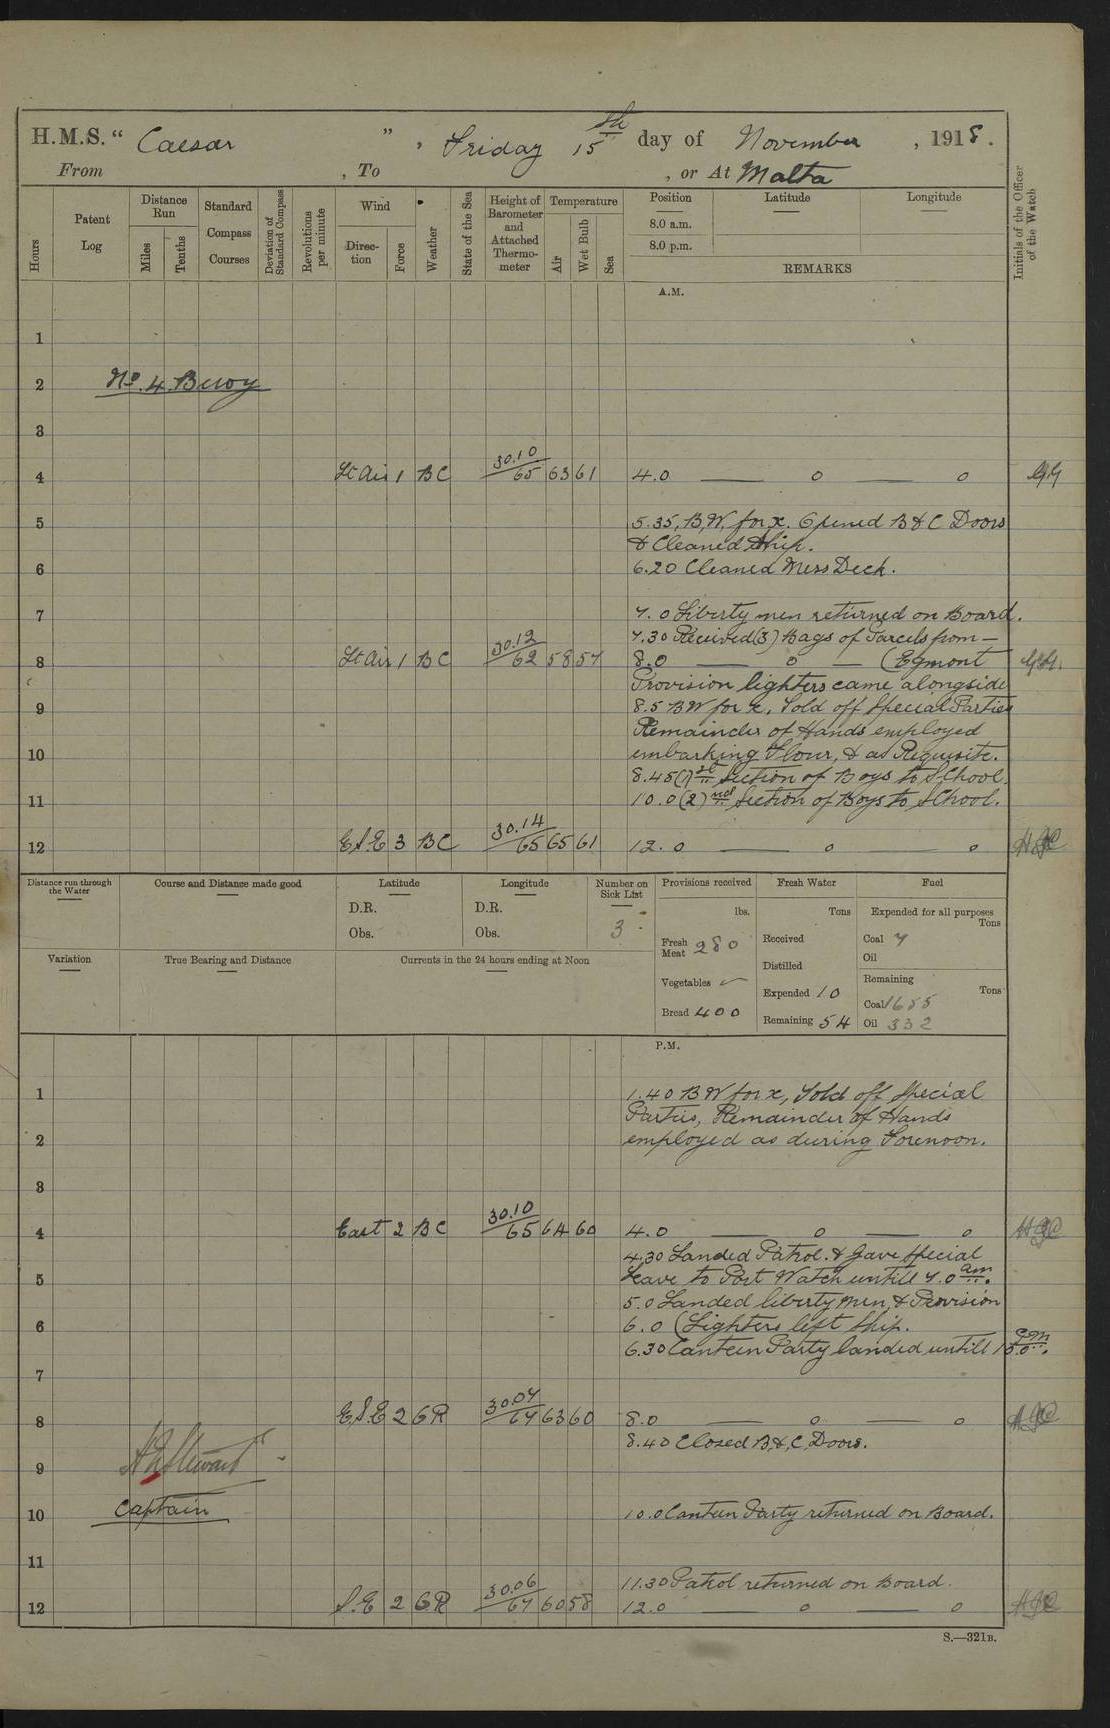 H.M.S. “ Caesar ” , Friday 15th day of November , 1918.
From , To , or At Malta
Hours
Patent Log
Distance Run
Miles
Tenths
Standard Compass Courses
Deviation of Standard Compass
Revolutions per minute
Wind
Direc-tion
Force
Weather
State of the Sea
Height of Barometer and Attached Thermo-meter
Temperature
Air
Wet Bulb
Sea
Position Latitude Longitude
8.0 a.m.
8.0 p.m.
REMARKS
Initials of the Officer of the Watch
A.M.
1
2 No. 4 Buoy
3
4 Lt Air 1 BC 30.10 65 63 61 4.0 — 0 — 0
5 5.35, B,W, for x. Opened B & C Doors
& Cleaned Ship.
6 6.20 Cleaned Mess Deck.
7 7.0 Liberty men returned on Board.
7.30 Received (3) Bags of Parcels from —
8 Lt Air 1 BC 30.12 62 58 57 8.0 — 0 — (Egmont
Provision lighters came alongside
9 8.5 BW for x, Told off Special Parties
Remainder of Hands employed
10 embarking Flour, & as Requisite.
8.45 (1)st Section of Boys to School.
11 10.0 (2)nd Section of Boys to School.
12 E.S.E 3 BC 30.14 65 65 61 12.0 — 0 — 0
Distance run through the Water
Course and Distance made good
Latitude
D.R.
Obs.
Longitude
D.R.
Obs.
Number on Sick List
3
Provisions received
lbs.
Fresh Meat 280
Vegetables ✓
Bread 400
Fresh Water
Tons
Received
Distilled
Expended 10
Remaining 54
Fuel
Expended for all purposes
Tons
Coal 7
Oil
Remaining
Tons
Coal 1655
Oil 332
Variation
True Bearing and Distance
Currents in the 24 hours ending at Noon
P.M.
1 1.40 BW for x, Told off Special
Parties, Remainder of Hands
2 employed as during Forenoon.
3
4 East 2 BC 30.10 65 64 60 4.0 — 0 — 0
4.30 Landed Patrol. & Gave Special
5 Leave to Port Watch untill 7.0 am.
5.0 Landed liberty men, & Provision
6 6.0 (Lighters left Ship.
6.30 Canteen Party landed untill 10.0 pm.
7
8 E.S.E 2 GR 30.07 67 63 60 8.0 — 0 — 0
8.40 Closed B, &, C, Doors.
9 Stewart
10 Captain 10.0 Canteen Party returned on Board.
11
11.30 Patrol returned on Board.
12 S.E 2 GR 30.06 67 60 58 12.0 — 0 — 0
S.—321B.